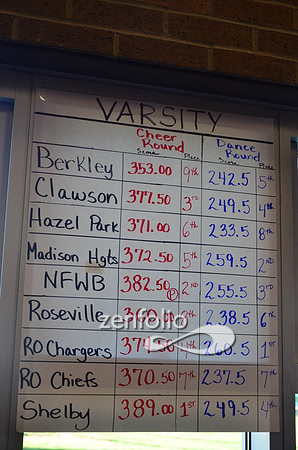 VARSITY
Cheer Round Dance Round
Score Place Score Place
Berkley 353.00 9th 242.5 5th
Clawson 377.50 3rd 249.5 4th
Hazel Park 371.00 6th 233.5 8th
Madison Hgts 372.50 5th 259.5 2nd
NFWB 382.50 P 2nd 255.5 3rd
Roseville 238.5 6th
zenfolio
RO Chargers 4th 260.5 1st
RO Chiefs 370.50 7th 237.5 7th
Shelby 389.00 1st 249.5 4th